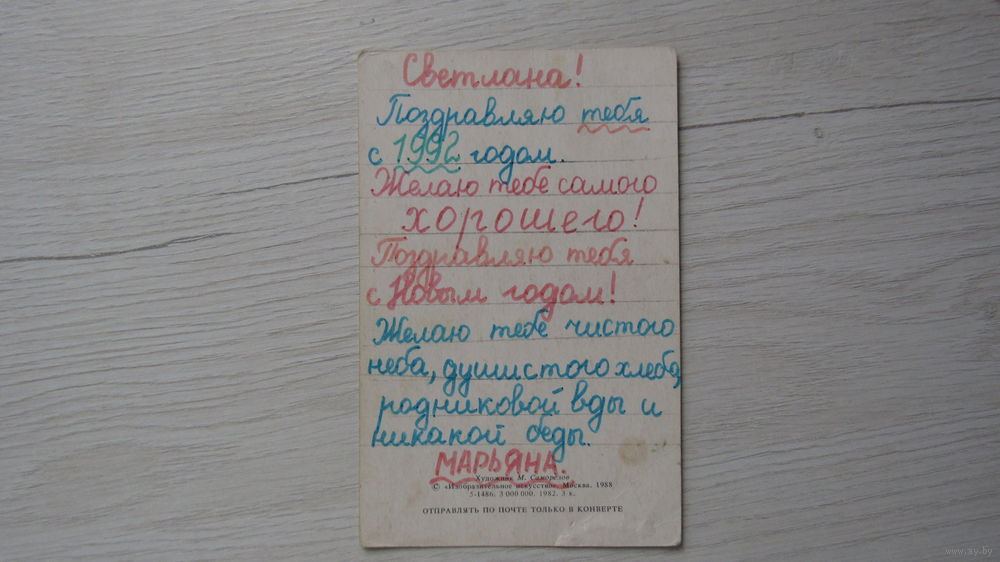 Светлана!
Поздравляю тебя
с 1992 годом.
Желаю тебе самого
хорошего!
Поздравляю тебя
с Новым годом!
Желаю тебе чистого
неба, душистого хлеба,
родниковой вды и
никакой беды.
МАРЬЯНА.
Художник М. Саморезов
© «Изобразительное искусство». Москва. 1988
5-1486. 3 000 000. 1982. 3 к.
ОТПРАВЛЯТЬ ПО ПОЧТЕ ТОЛЬКО В КОНВЕРТЕ
www.ay.by